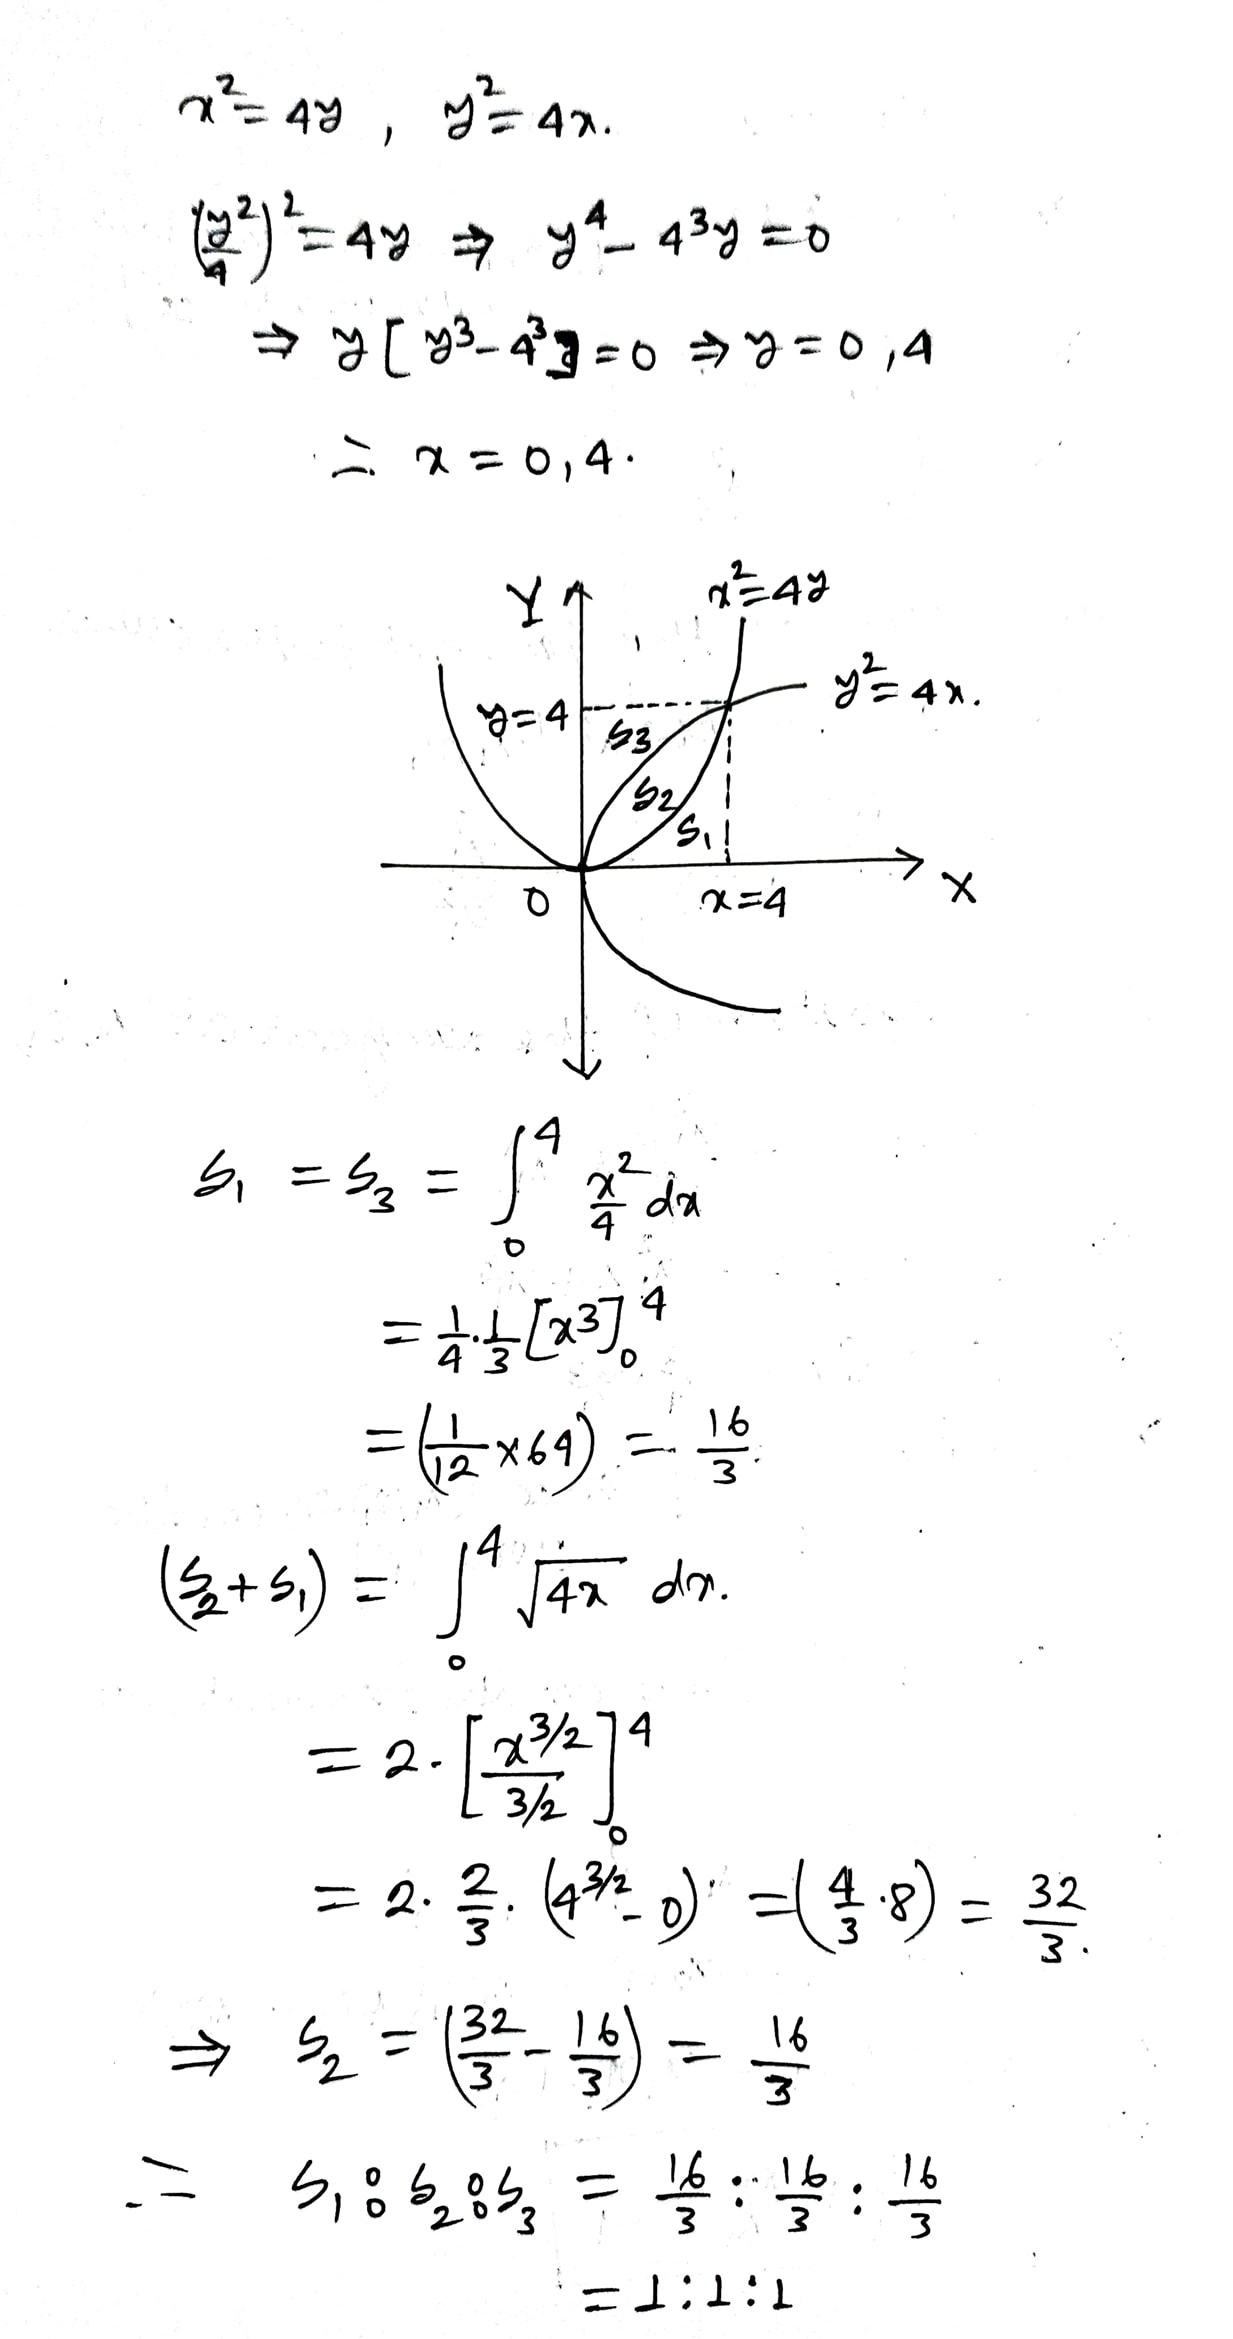 x² = 4y , y² = 4x.
(y²/4)² = 4y ⇒ y⁴ - 4³y = 0
⇒ y [ y³ - 4³ ] = 0 ⇒ y = 0 , 4
∴ x = 0 , 4 .
Y x² = 4y
y² = 4x.
y = 4
S3
S2
S1
O x = 4 X
S₁ = S₃ = ∫₀⁴ x²/4 dx
= 1/4 . 1/3 [x³]₀⁴
= (1/12 × 64) = 16/3
(S₂ + S₁) = ∫₀⁴ √4x dx.
= 2 . [x^3/2 / 3/2]₀⁴
= 2 . 2/3 . (4^3/2 - 0) = (4/3 . 8) = 32/3.
⇒ S₂ = (32/3 - 16/3) = 16/3
∴ S₁ : S₂ : S₃ = 16/3 : 16/3 : 16/3
= 1 : 1 : 1